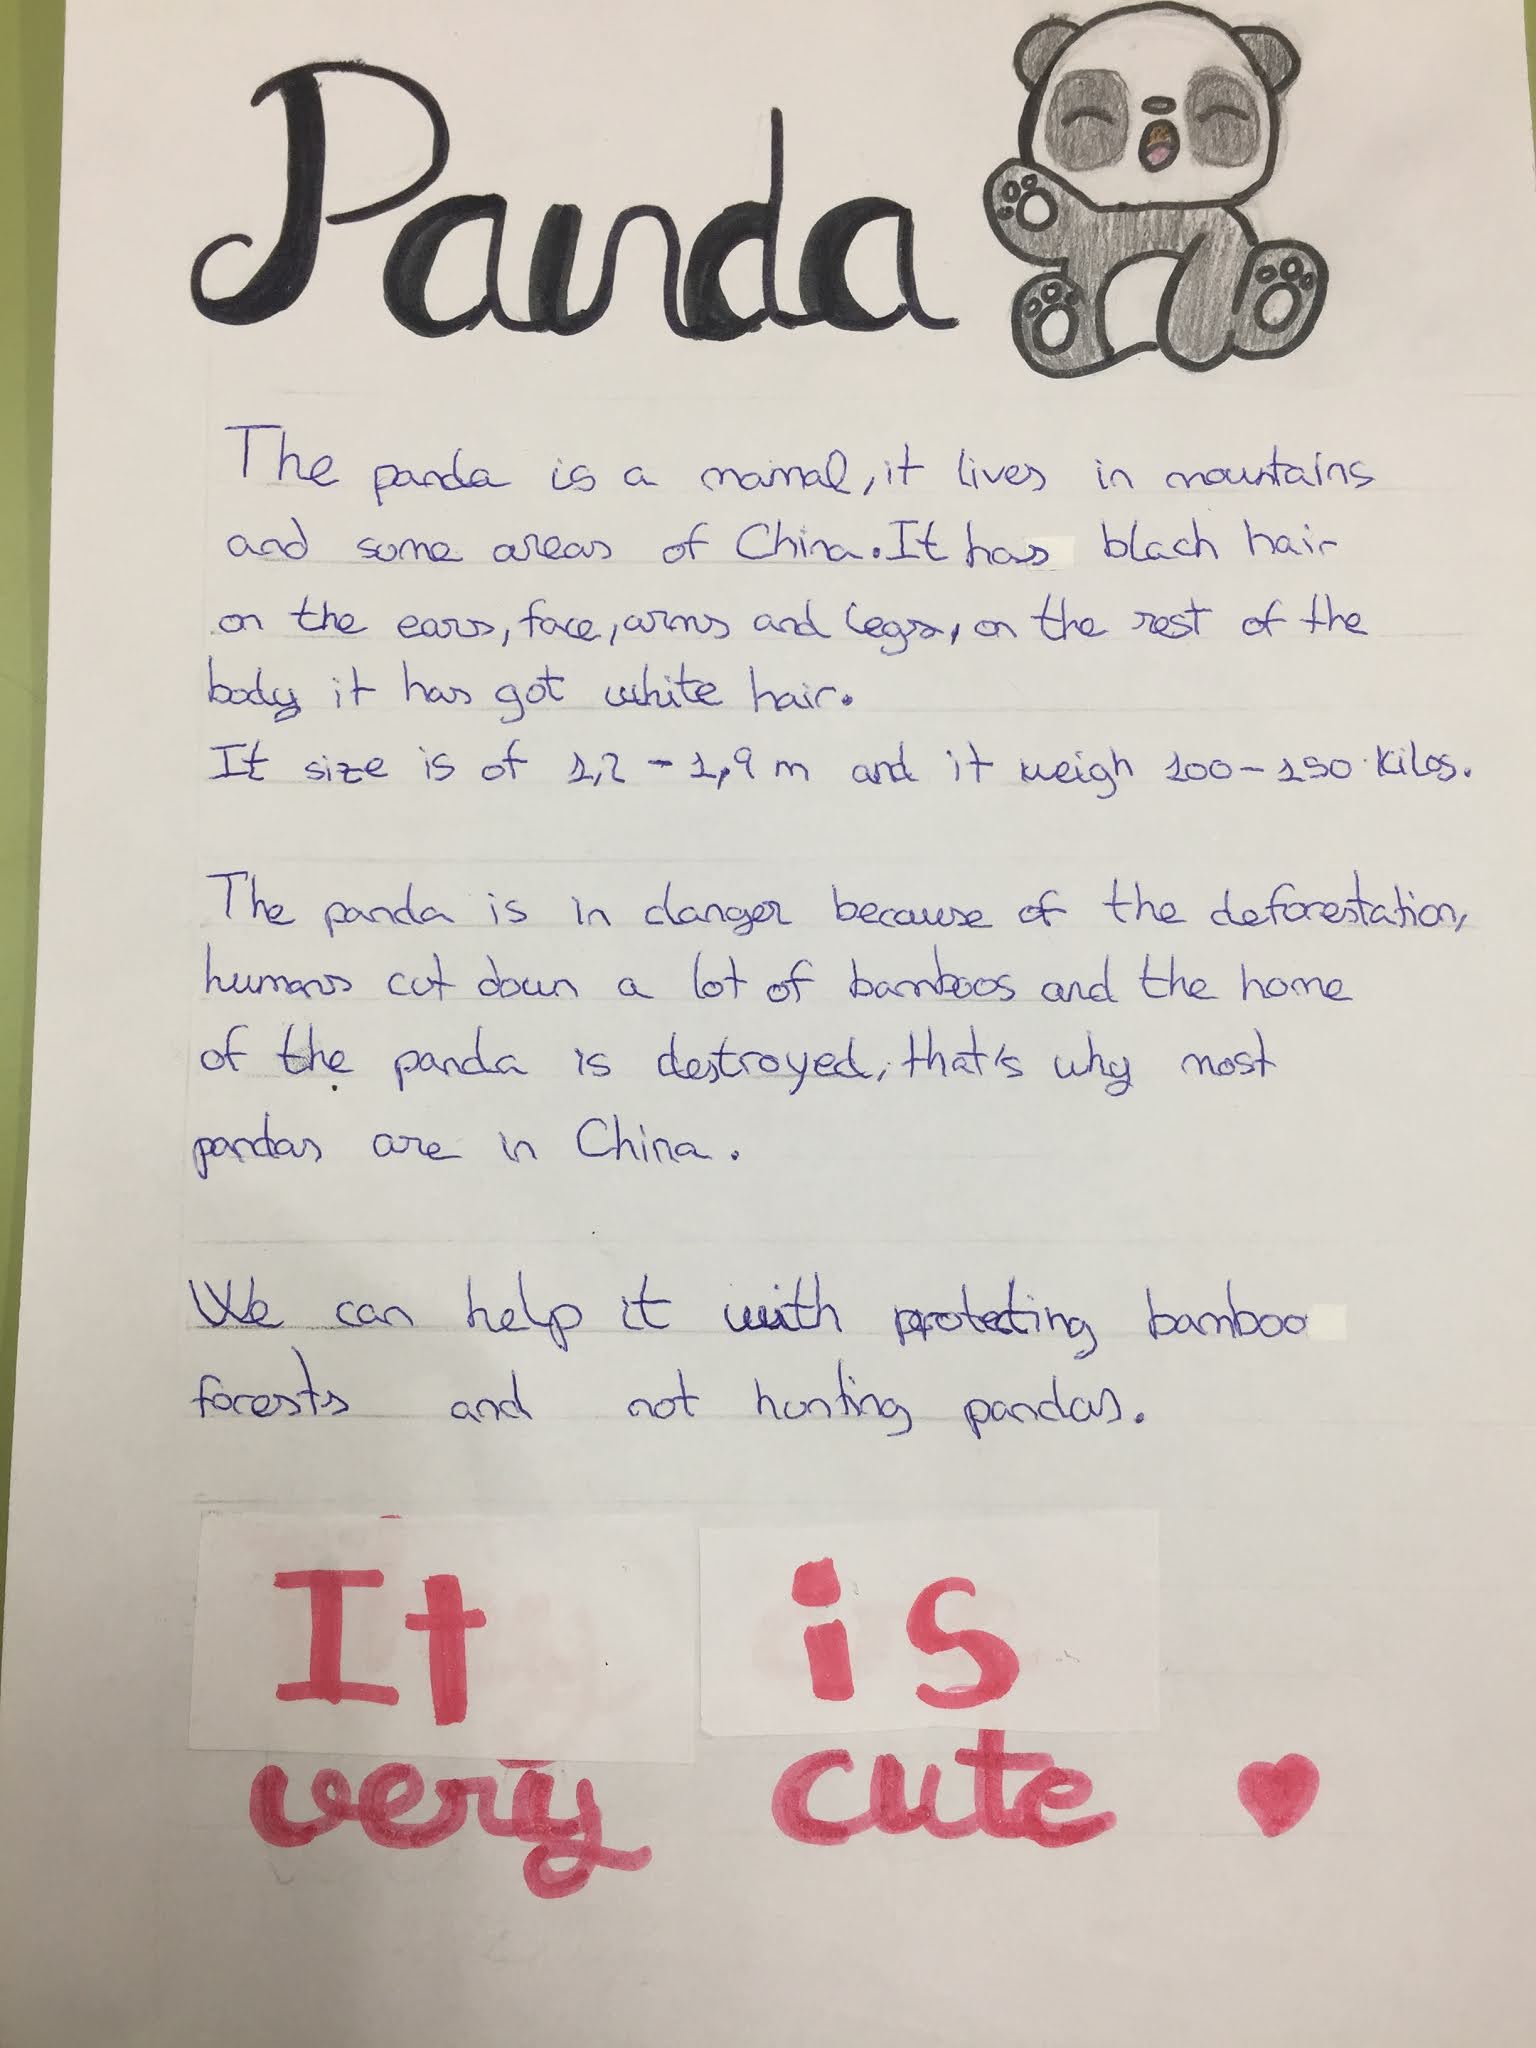 Panda
The panda is a mamal, it lives in mountains
and some areas of China. It has black hair
on the ears, face, arms and legs, on the rest of the
body it has got white hair.
It size is of 1,2 - 1,9 m and it weigh 100-150 kilos.
The panda is in danger because of the deforestation,
humans cut down a lot of bamboos and the home
of the panda is destroyed, that's why most
pandas are in China.
We can help it with protecting bamboo
forests and not hunting pandas.
It is
very cute